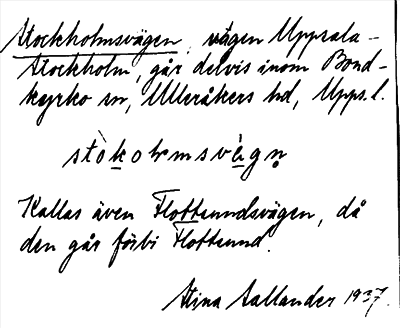 Stockholmsvägen, vägen Uppsala-
Stockholm, går delvis inom Bond-
kyrko sn, Ulleråkers hd, Upps. l.
stòkolmsvägn
Kallas även Flottsundsvägen, då
den går förbi Flottsund.
Stina Sallander 1937.